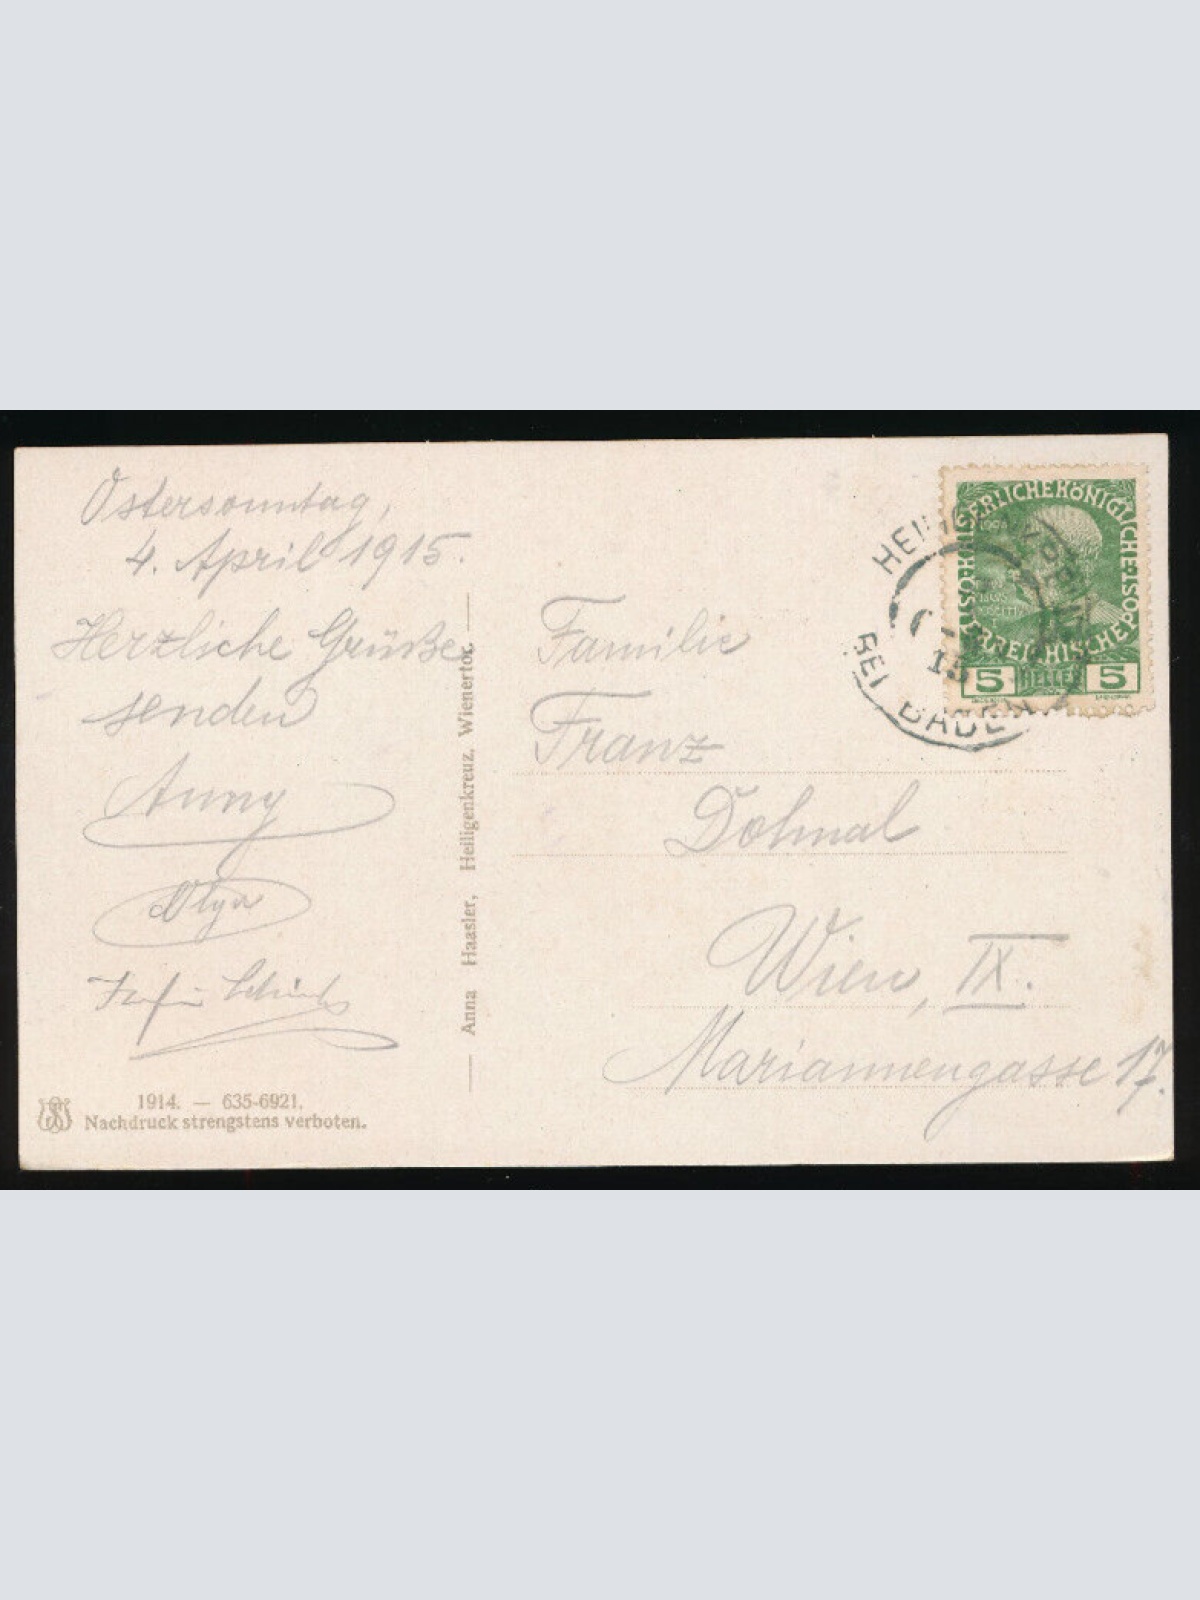 Ostersonntag,
4. April 1915.
Herzliche Grüße
senden
Anny
Olga
Familie
Franz
Dolmal
Wien, IX.
Mariannengasse 17.
Anna Haasler, Heiligenkreuz, Wienertor.
1914. — 635-6921.
Nachdruck strengstens verboten.
KAISERLICHE KÖNIGLICHE ÖSTERREICHISCHE POST
1908
5 HELLER 5
BEI BADEN
15